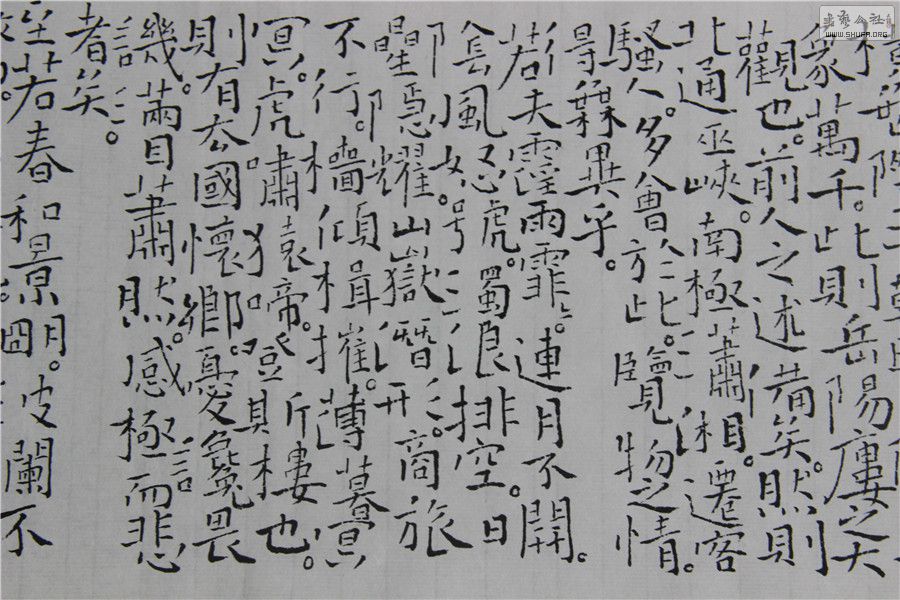 象萬千。此則岳陽廔之大
觀也。前人之述備矣。然則
北通巫峽。南極蕭湘。遷客
騷人。多會於此。覽物之情。
得無異乎。
若夫霪雨霏霏。連月不開。
陰風怒號。濁浪排空。日
星隱耀。山嶽潛形。商旅
不行。檣傾楫摧。薄暮冥
冥。虎嘯猿啼。登斯樓也。
則有去國懷鄉。憂讒畏
譏。滿目蕭然。感極而悲
者矣。
至若春和景明。波闌不
WWW.SHUFA.ORG